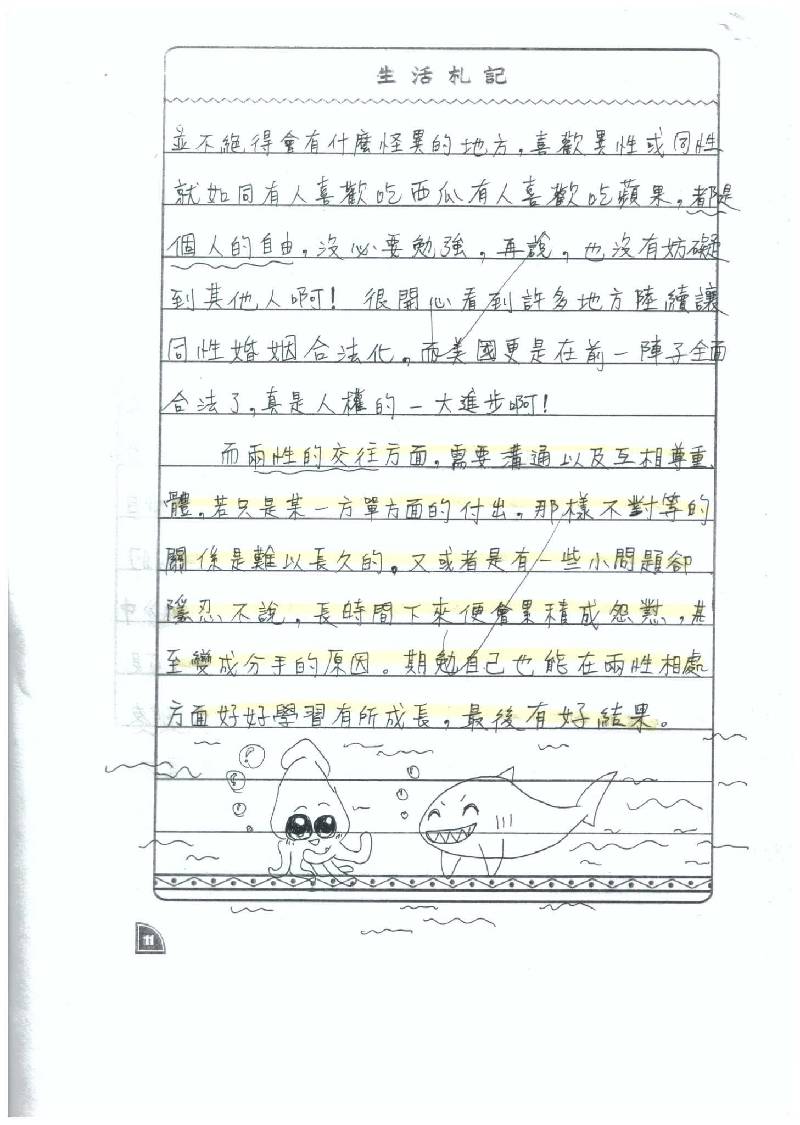 生活札記
並不絕得會有什麼怪異的地方，喜歡異性或同性
就如同有人喜歡吃西瓜有人喜歡吃蘋果，都是
個人的自由，沒必要勉強，再說，也沒有妨礙
到其他人啊！很開心看到許多地方陸續讓
同性婚姻合法化，而美國更是在前一陣子全面
合法了，真是人權的一大進步啊！
而兩性的交往方面，需要溝通以及互相尊重、
體，若只是某一方單方面的付出，那樣不對等的
關係是難以長久的，又或者是有一些小問題卻
隱忍不說，長時間下來便會累積成怨懟，甚
至變成分手的原因。期勉自己也能在兩性相處
方面好好學習有所成長，最後有好結果。
11